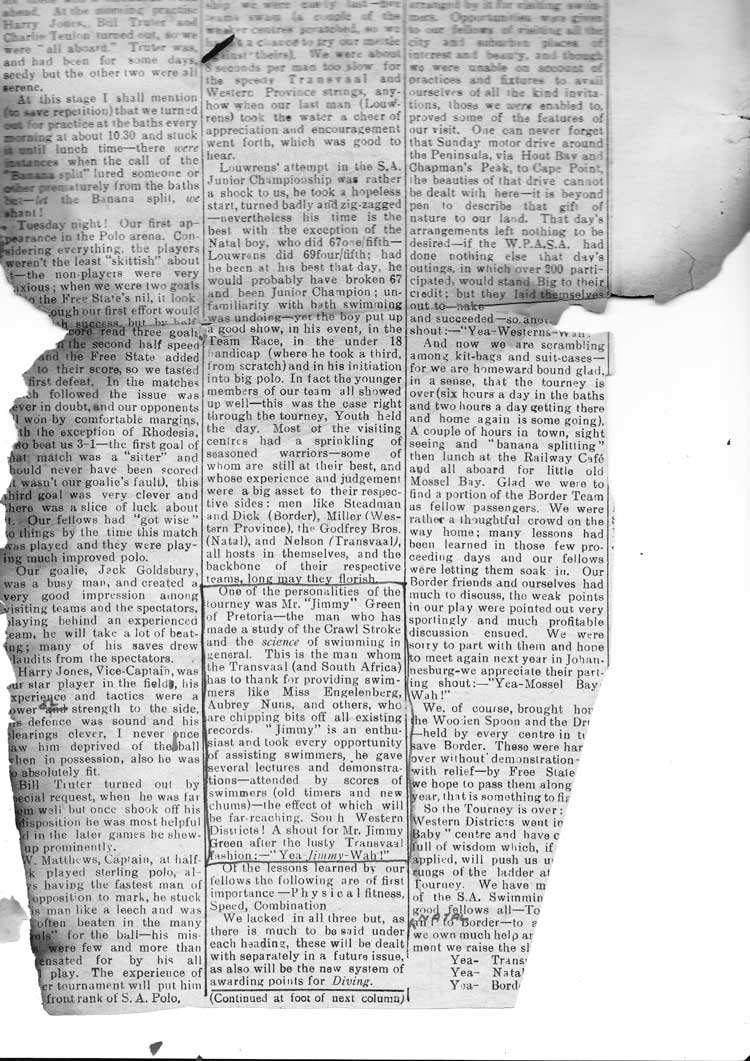 ahead. At the morning practise
Harry Jones, Bill Truter and
Charlie Teulon turned out, so we
were "all aboard." Truter was,
and had been for some days,
seedy but the other two were all
serene.
At this stage I shall mention
(to save repetition) that we turned
out for practice at the baths every
morning at about 10.30 and stuck
it until lunch time—there were
instances when the call of the
"Banana split" lured someone or
other prematurely from the baths
but—let the Banana split, we
shant!
Tuesday night! Our first ap-
pearance in the Polo arena. Con-
sidering everything, the players
weren't the least "skittish" about
it—the non-players were very
anxious; when we were two goals
the Free State's nil, it look
ough our first effort would
success, but by half
score read three goal
the second half speed
and the Free State added
to their score, so we tasted
first defeat. In the matches
ch followed the issue was
ever in doubt, and our opponents
won by comfortable margins,
th the exception of Rhodesia,
ho beat us 3-1—the first goal of
hat match was a "sitter" and
hould never have been scored
t wasn't our goalie's fault), this
hird goal was very clever and
here was a slice of luck about
t. Our fellows had "got wise"
to things by the time this match
was played and they were play-
ing much improved polo.
Our goalie, Jack Goldsbury,
was a busy man, and created a
very good impression among
visiting teams and the spectators,
laying behind an experienced
team, he will take a lot of beat-
ing; many of his saves drew
laudits from the spectators.
Harry Jones, Vice-Captain, was
ur star player in the field, his
xperience and tactics were a
ower and strength to the side,
is defence was sound and his
learings clever, I never once
aw him deprived of the ball
hen in possession, also he was
o absolutely fit.
Bill Truter turned out by
ecial request, when he was far
om well but once shook off his
disposition he was most helpful
d in the later games he shew-
up prominently.
W. Matthews, Captain, at half-
k played sterling polo, al-
ys having the fastest man of
opposition to mark, he stuck
s man like a leech and was
often beaten in the many
els" for the ball—his mis-
s were few and more than
ensated for by his all
play. The experience of
er tournament will put him
front rank of S.A. Polo.
ship we were easily last
teams swam (a couple of the
weaker centres scratched, so we
a chance to try our
against theirs). We were about
8 seconds per man too slow for
the speedy Transvaal and
Western Province strings, any-
how when our last man (Louw-
rens) took the water a cheer of
appreciation and encouragement
went forth, which was good to
hear.
Louwrens' attempt in the S.A.
Junior Championship was rather
a shock to us, he took a hopeless
start, turned badly and zig-zagged
—nevertheless his time is the
best with the exception of the
Natal boy, who did 67one/fifth—
Louwrens did 69four/fifth; had
he been at his best that day, he
would probably have broken 67
and been Junior Champion; un-
familiarity with bath swimming
was undoing—yet the boy put up
a good show, in his event, in the
Team Race, in the under 18
handicap (where he took a third,
from scratch) and in his initiation
into big polo. In fact the younger
members of our team all showed
up well—this was the case right
through the tourney, Youth held
the day. Most of the visiting
centres had a sprinkling of
seasoned warriors—some of
whom are still at their best, and
whose experience and judgement
were a big asset to their respec-
tive sides: men like Steadman
and Dick (Border), Miller (Wes-
tern Province), the Godfrey Bros.
(Natal), and Nelson (Transvaal),
all hosts in themselves, and the
backbone of their respective
teams, long may they florish.
One of the personalities of the
tourney was Mr. "Jimmy" Green
of Pretoria—the man who has
made a study of the Crawl Stroke
and the science of swimming in
general. This is the man whom
the Transvaal (and South Africa)
has to thank for providing swim-
mers like Miss Engelenberg,
Aubrey Nuns, and others, who
are chipping bits off all existing
records. "Jimmy" is an enthu-
siast and took every opportunity
of assisting swimmers, he gave
several lectures and demonstra-
tions—attended by scores of
swimmers (old timers and new
chums)—the effect of which will
be far-reaching. Sou h Western
Districts! A shout for Mr. Jimmy
Green after the lusty Transvaal
fashion:—"Yea Jimmy-Wah!"
Of the lessons learned by our
fellows the following are of first
importance—Physical fitness,
Speed, Combination
We lacked in all three but, as
there is much to be said under
each heading, these will be dealt
with separately in a future issue,
as also will be the new system of
awarding points for Diving.
(Continued at foot of next column)
arranged by it for visiting swim-
mers. Opportunities were given
to our fellows of visiting all the
city and suburban places of
interest and beauty, and though
we were unable on account of
practices and fixtures to avail
ourselves of all the kind invita-
tions, those we were enabled to,
proved some of the features of
our visit. One can never forget
that Sunday motor drive around
the Peninsula, via Hout Bay and
Chapman's Peak, to Cape Point,
the beauties of that drive cannot
be dealt with here—it is beyond
pen to describe that gift of
nature to our land. That day's
arrangements left nothing to be
desired—if the W.P.A.S.A. had
done nothing else that day's
outings, in which over 200 parti-
cipated, would stand Big to their
credit; but they laid themselves
out to make
and succeeded—so anot
shout:—"Yea-Westerns-Wah!
And now we are scrambling
among kit-bags and suit-cases—
for we are homeward bound glad,
in a sense, that the tourney is
over (six hours a day in the baths
and two hours a day getting there
and home again is some going).
A couple of hours in town, sight
seeing and "banana splitting"
then lunch at the Railway Café
and all aboard for little old
Mossel Bay. Glad we were to
find a portion of the Border Team
as fellow passengers. We were
rather a thoughtful crowd on the
way home; many lessons had
been learned in those few pro-
ceeding days and our fellows
were letting them soak in. Our
Border friends and ourselves had
much to discuss, the weak points
in our play were pointed out very
sportingly and much profitable
discussion ensued. We were
sorry to part with them and hope
to meet again next year in Johan-
nesburg—we appreciate their part-
ing shout:—"Yea-Mossel Bay
Wah!"
We, of course, brought hom
he Wooden Spoon and the Dr
—held by every centre in t
save Border. These were han
over without demonstration-
with relief—by Free State
we hope to pass them along
year, that is something to fig
So the Tourney is over:
Western Districts went in
Baby" centre and have c
full of wisdom which, if
applied, will push us u
rungs of the ladder at
Tourney. We have m
of the S.A. Swimmin
good fellows all—To
NATAL
and to Border—to a
we own much help an
ment we raise the sh
Yea- Trans
Yea- Natal
Yea- Bord